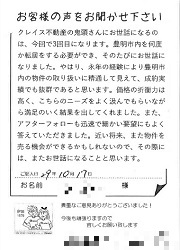 お客様の声をお聞かせ下さい
クレイス不動産の鬼頭さんにお世話になるの
は、今回で3回目になります。豊明市内を何度
か転居をする必要ができ、そのたびにお世話に
なりました。やはり、永年の経験により豊明市
内の物件の取り扱いに精通して見えて、成約実
績でも抜群であると思います。価格の折衝力は
高く、こちらのニーズをよく読んでもらいなが
ら満足のいく結果を出してくれました。また、
アフターフォローも迅速で細かい要望にもよく
答えていただきました。近い将来、また物件を
売る機会ができるかもしれないので、その際に
は、またお世話になることと思います。
ご記入日 29年10月17日
お名前 様
貴重なご意見ありがとうございました!
今後も頑張りますので
宜しくお願い致します